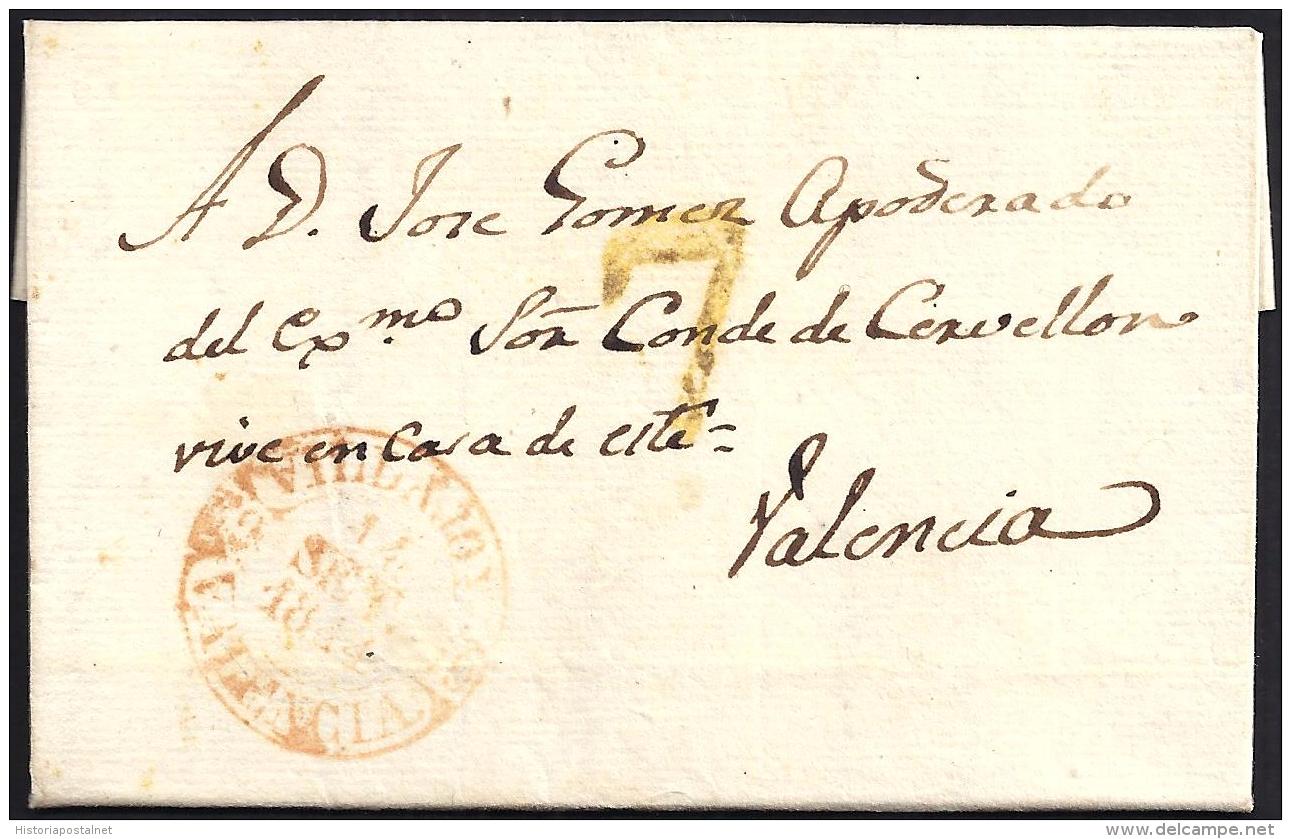 A D. Jose Gomez Apoderado
del Exmo Sōr Conde de Cervellon
vive en Casa de este =
Valencia
7
14
SET
VALENCIA.
Historiapostalnet
www.delcampe.net